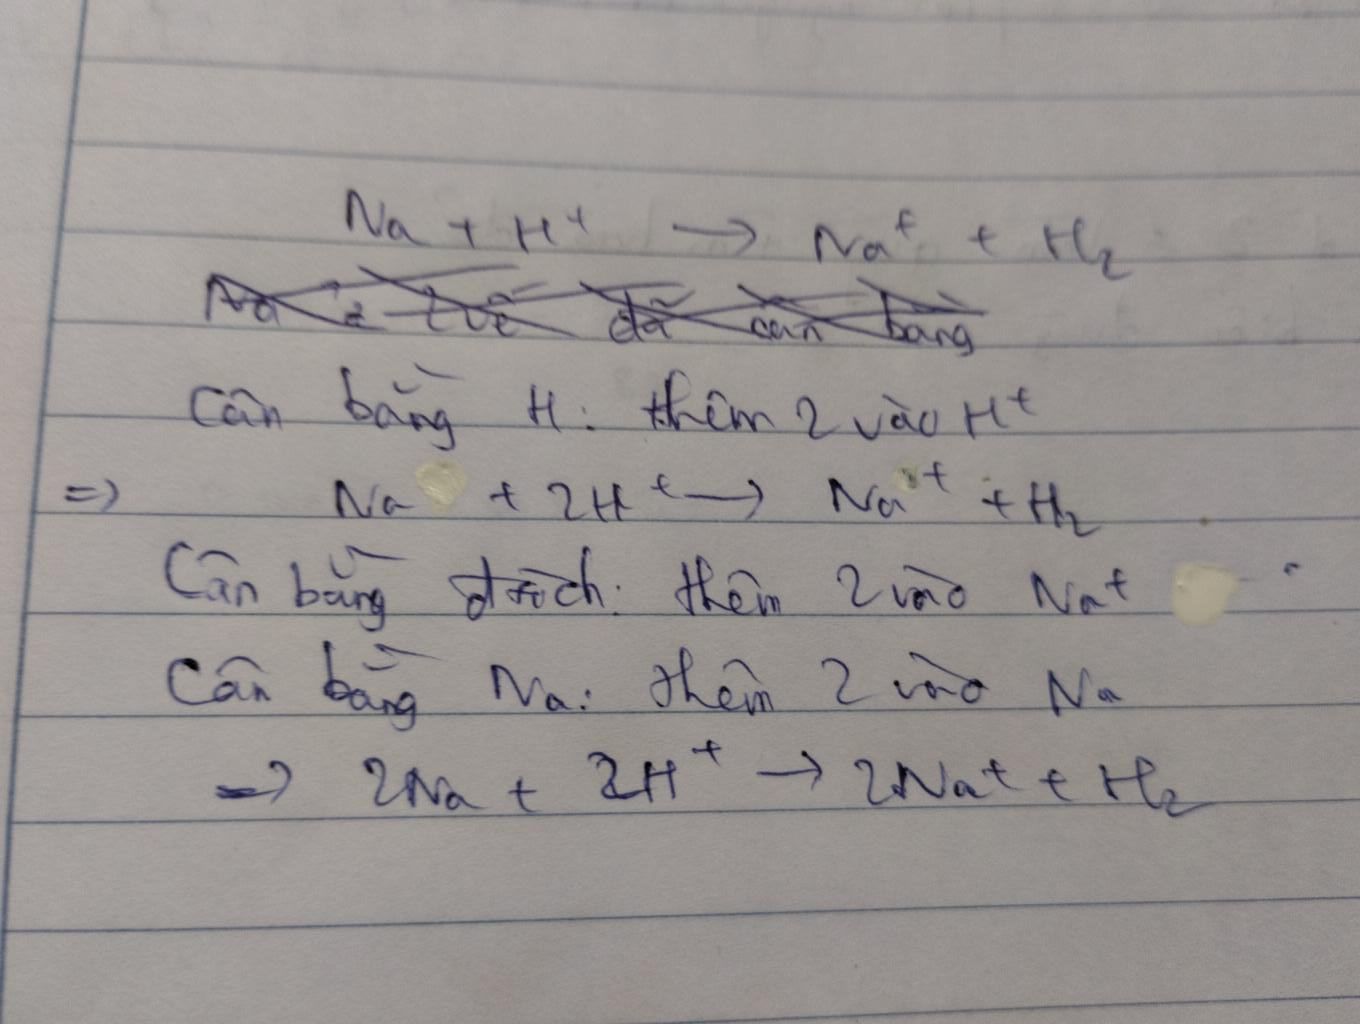 Na + H⁺ → Na⁺ + H₂
đã cân bằng
Cân bằng H: thêm 2 vào H⁺
=> Na + 2H⁺ → Na⁺ + H₂
Cân bằng đtích: thêm 2 vào Na⁺
Cân bằng Na: thêm 2 vào Na
=> 2Na + 2H⁺ → 2Na⁺ + H₂